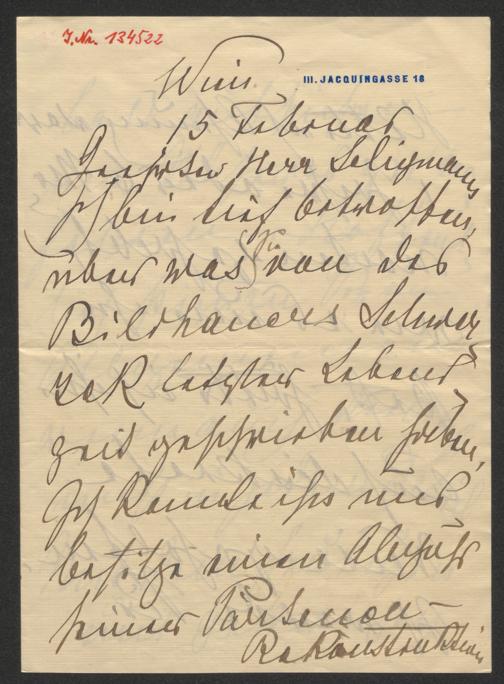 J.Nr. 134522
III. JACQUINGASSE 18
Wien
15 Februar
Geehrter Herr Seligmann
Ich bin tief betroffen,
über was Sie von des
Bildhauers Schwer
zek letzter Lebens
zeit geschrieben haben,
Ich kannte ihn und
besitze einen Abguss
seiner Partenon-
Rekonstruktion